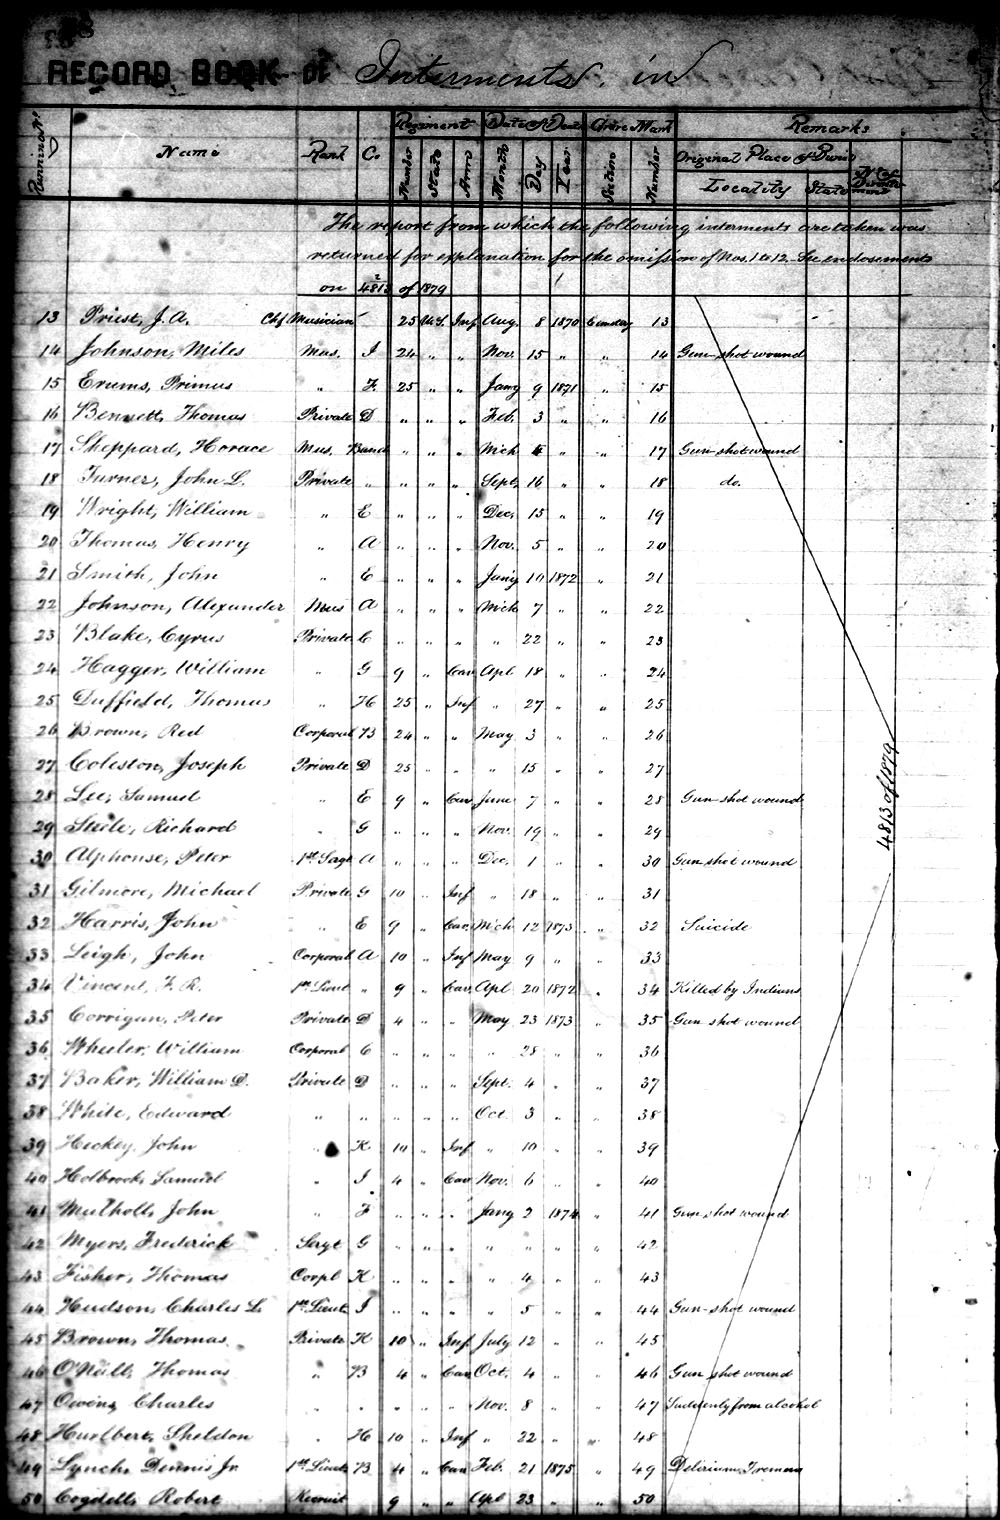 RECORD BOOK of Interments in
Running No. Name Rank Co. Regiment Date of Death Grave Mark Remarks
Number State Arm Month Day Year Section Number Original Place of Burial
Locality State
The report from which the following interments are taken was
returned for explanation for the omission of Nos. 1 to 12. See endosements
on 4813 of 1879
13 Priest, J. A. Chf Musician 25 U.S. Inf Aug. 8 1870 Cemetery 13
14 Johnson, Miles Mus. I 24 " " Nov. 15 " " 14 Gun-shot wound
15 Erums, Primus " F. 25 " " Jany 9 1871 " 15
16 Bennett, Thomas Private D " " " Feb. 3 " " 16
17 Sheppard, Horace Mus. Band " " " Mch 4 " " 17 Gun-shot wound
18 Turner, John L. Private " " " " Sept. 16 " " 18 do.
19 Wright, William " E " " " Dec. 15 " " 19
20 Thomas, Henry " A " " " Nov. 5 " " 20
21 Smith, John " E " " " Jany 10 1872 " 21
22 Johnson, Alexander Mus A " " " Mch 7 " " 22
23 Blake, Cyrus Private C " " " " 22 " " 23
24 Hagger, William " G 9 " Cav Apl 18 " " 24
25 Duffield, Thomas " H 25 " Inf " 27 " " 25
26 Brown, Red Corporal B 24 " " May 3 " " 26
27 Coleston, Joseph Private D 25 " " " 15 " " 27
28 Lee, Samuel " E 9 " Cav June 7 " " 28 Gun shot wound
29 Steile, Richard " G " " " Nov. 19 " " 29
30 Alphonse, Peter 1st Sergt A " " " Dec. 1 " " 30 Gun shot wound
31 Gilmore, Michael Private G 10 " Inf " 18 " " 31
32 Harris, John " E 9 " Cav. Mch 12 1873 " 32 Suicide
33 Leigh, John Corporal A 10 " Inf May 9 " " 33
34 Vincent, F. R. 1st Lieut " 9 " Cav. Apl 20 1872 " 34 Killed by Indians
35 Corrigan, Peter Private D 4 " " May 23 1873 " 35 Gun shot wound
36 Wheeler, William Corporal C " " " " 28 " " 36
37 Baker, William D. Private D " " " Sept. 4 " " 37
38 White, Edward " " " " " Oct. 3 " " 38
39 Heckey, John " K 10 " Inf " 10 " " 39
40 Holbrook, Samuel " I 4 " Cav Nov. 6 " " 40
41 Mulholl, John " F " " " Jany 2 1874 " 41 Gun shot wound
42 Myers, Frederick Sergt G " " " " " " " 42
43 Fisher, Thomas Corpl K " " " " 4 " " 43
44 Hudson, Charles L. 1st Lieut I " " " " 5 " " 44 Gun-shot wound
45 Brown, Thomas Private H 10 " Inf July 12 " " 45
46 O'Neill, Thomas " B 4 " Cav Oct. 4 " " 46 Gun shot wound
47 Owens, Charles " " " " " Nov. 8 " " 47 Suddenly from alcohol
48 Hurlbert, Sheldon " H 10 " Inf " 22 " " 48
49 Lynch, Dennis Jr 1st Lieut B 4 " Cav Feb. 21 1875 " 49 Delirium Tremens
50 Cogdell, Robert Recruit 9 " " Apl 23 " " 50
4813 of 1879